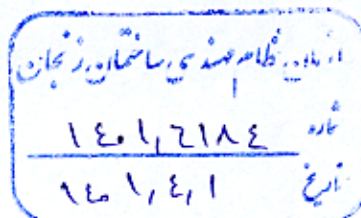 سازمان نظام مهندسی ساختمان زنجان
شماره ۱۴۰۱,۶۱۸۴
تاریخ ۱۴۰۱,۴,۱